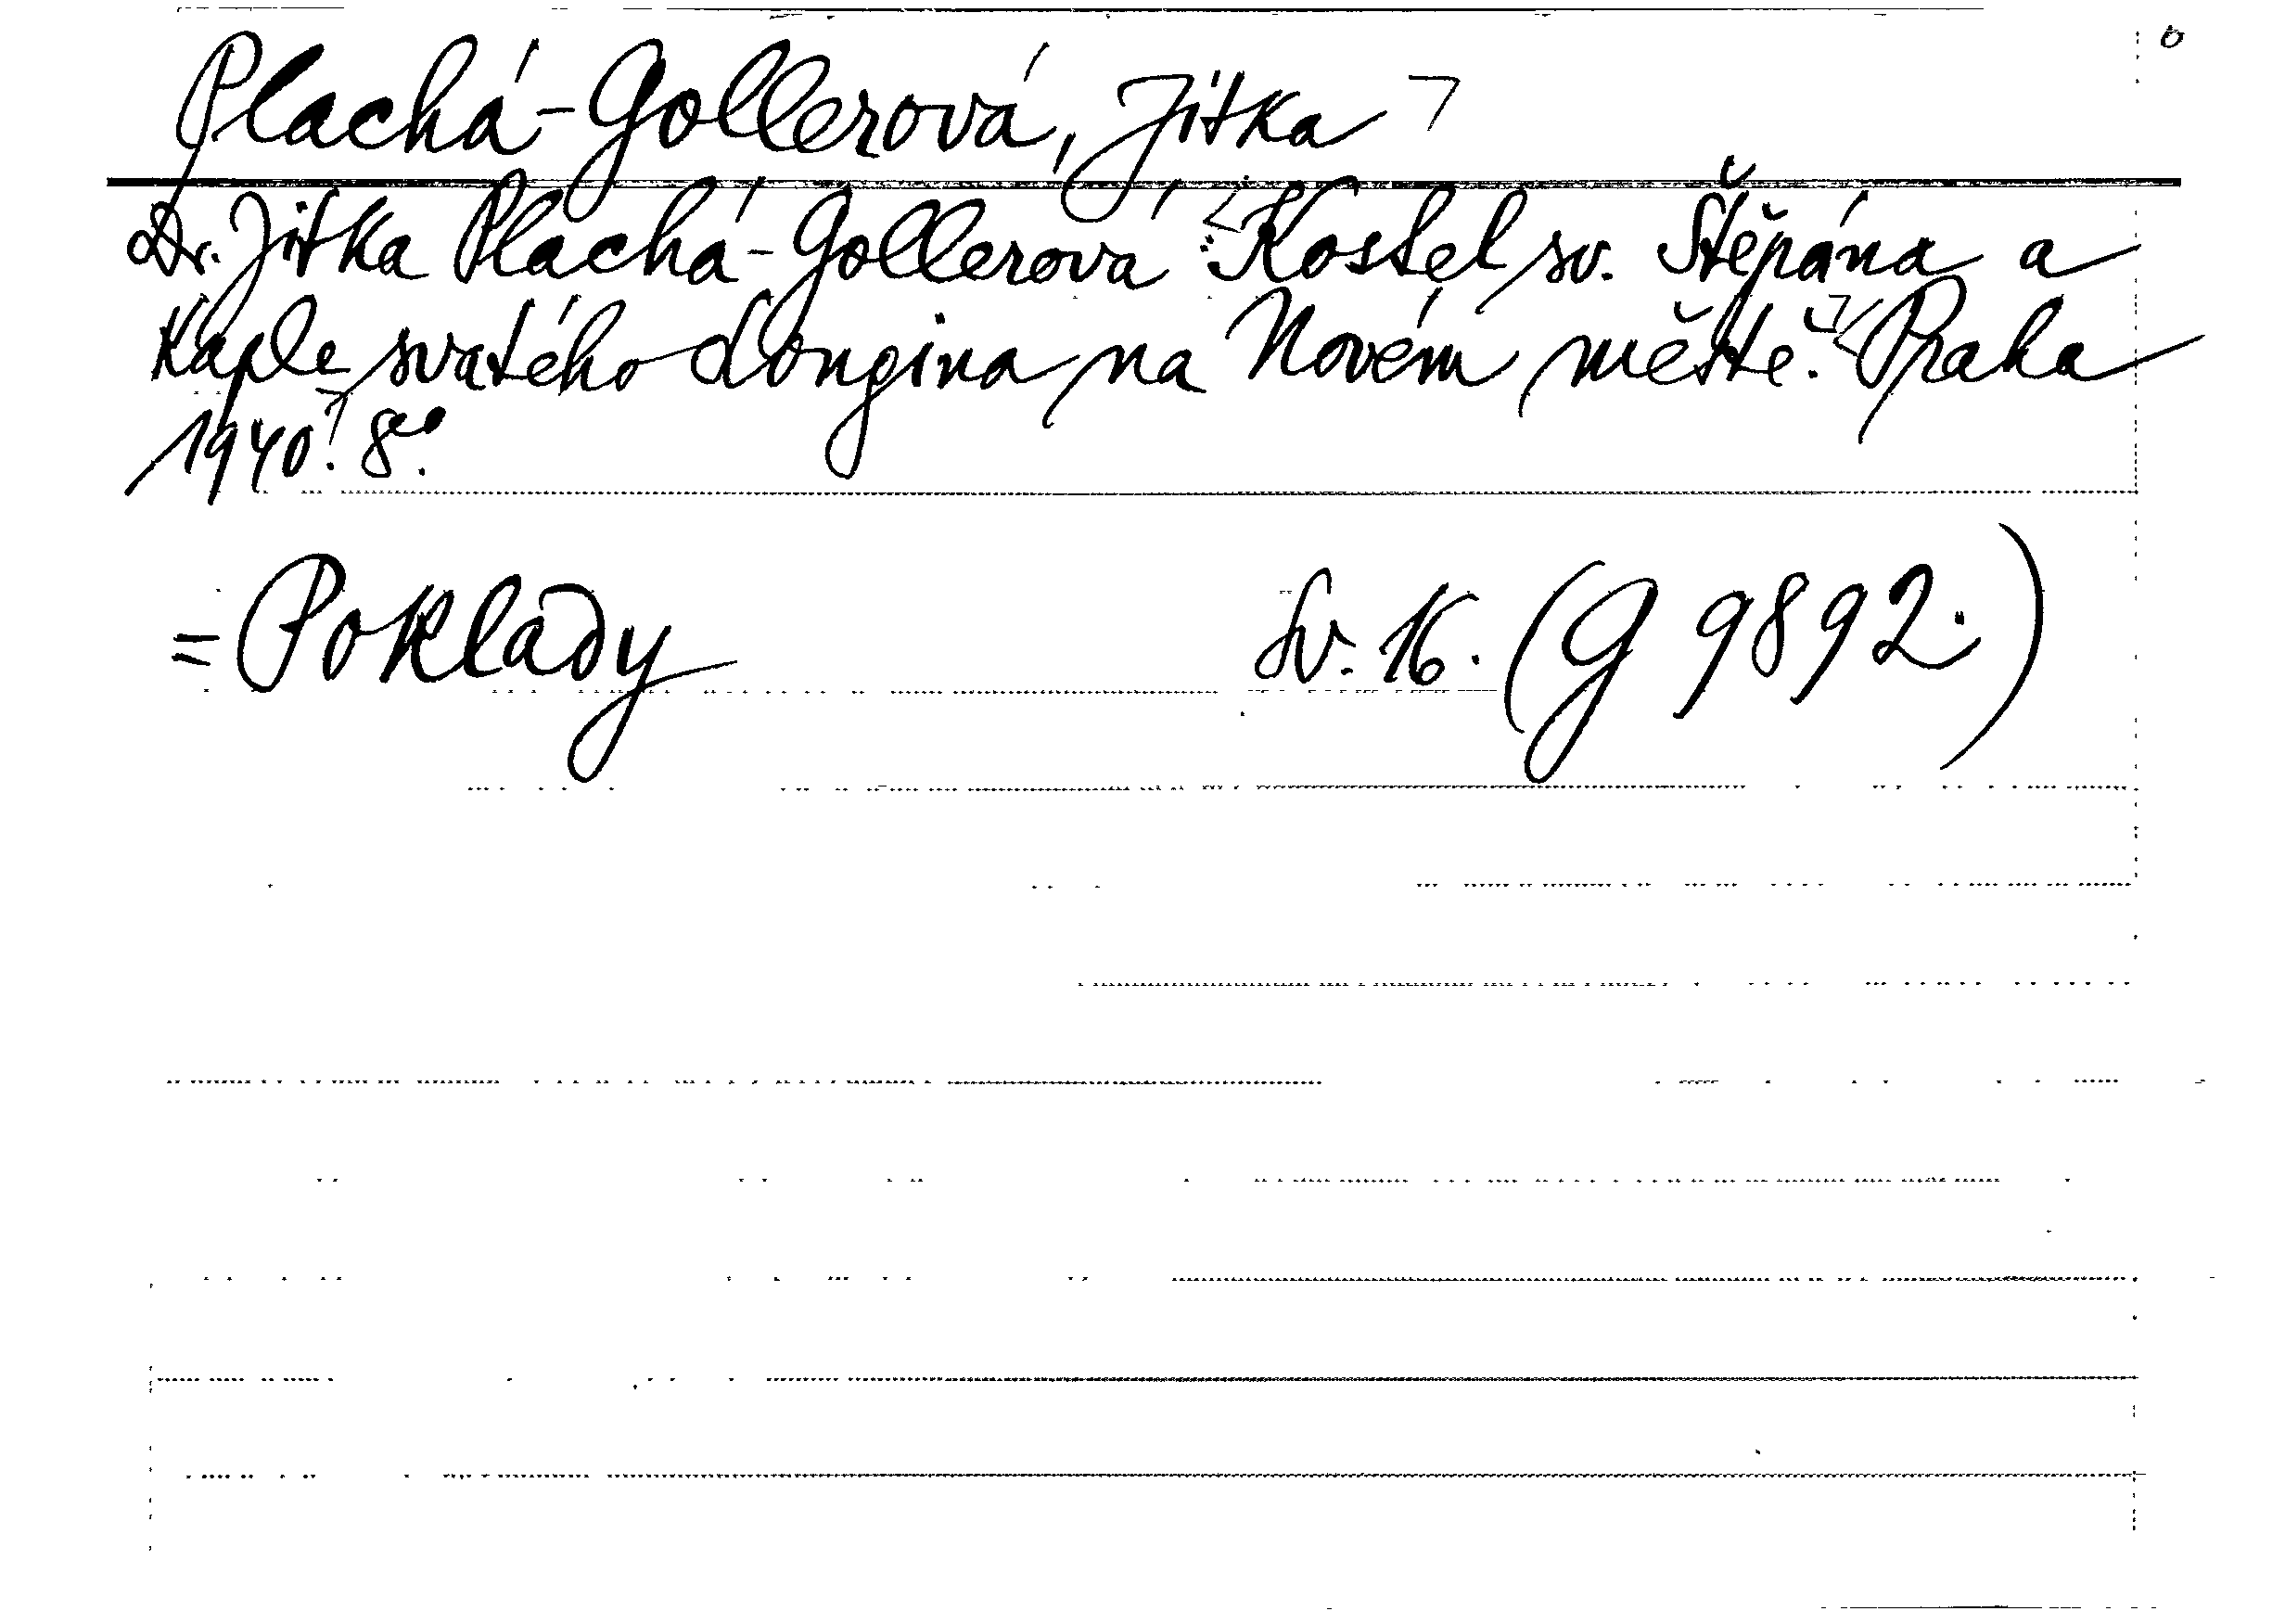 Plachá-Gollerová, Jitka
Dr. Jitka Plachá-Gollerová: Kostel sv. Štěpána a
Kaple svatého Longina na Novém městě. Praha
1940. 8°.
= Poklady Sv. 16. (G 9892.)